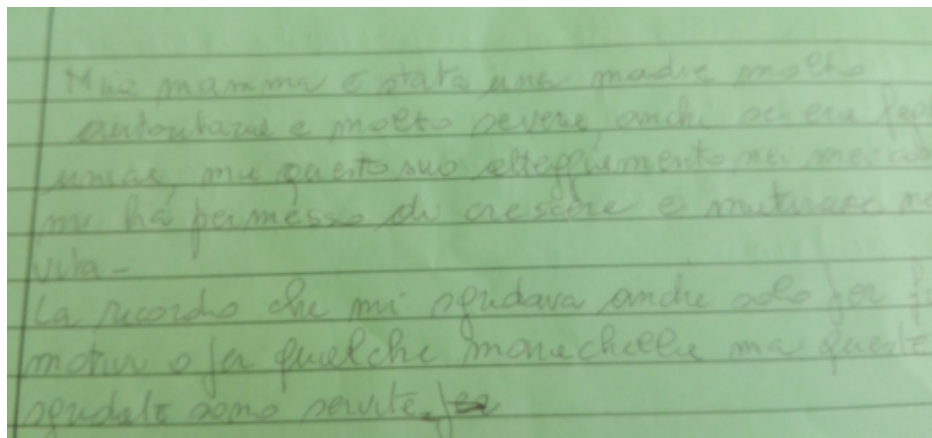 Mia mamma è stata una madre molto
autoritaria e molto severa, anche se era
unica, ma questo suo atteggiamento nei miei
mi ha permesso di crescere e maturare
vita -
La ricordo che mi sgridava anche solo per
motivi o per qualche marachella ma queste
sgridate sono servite.